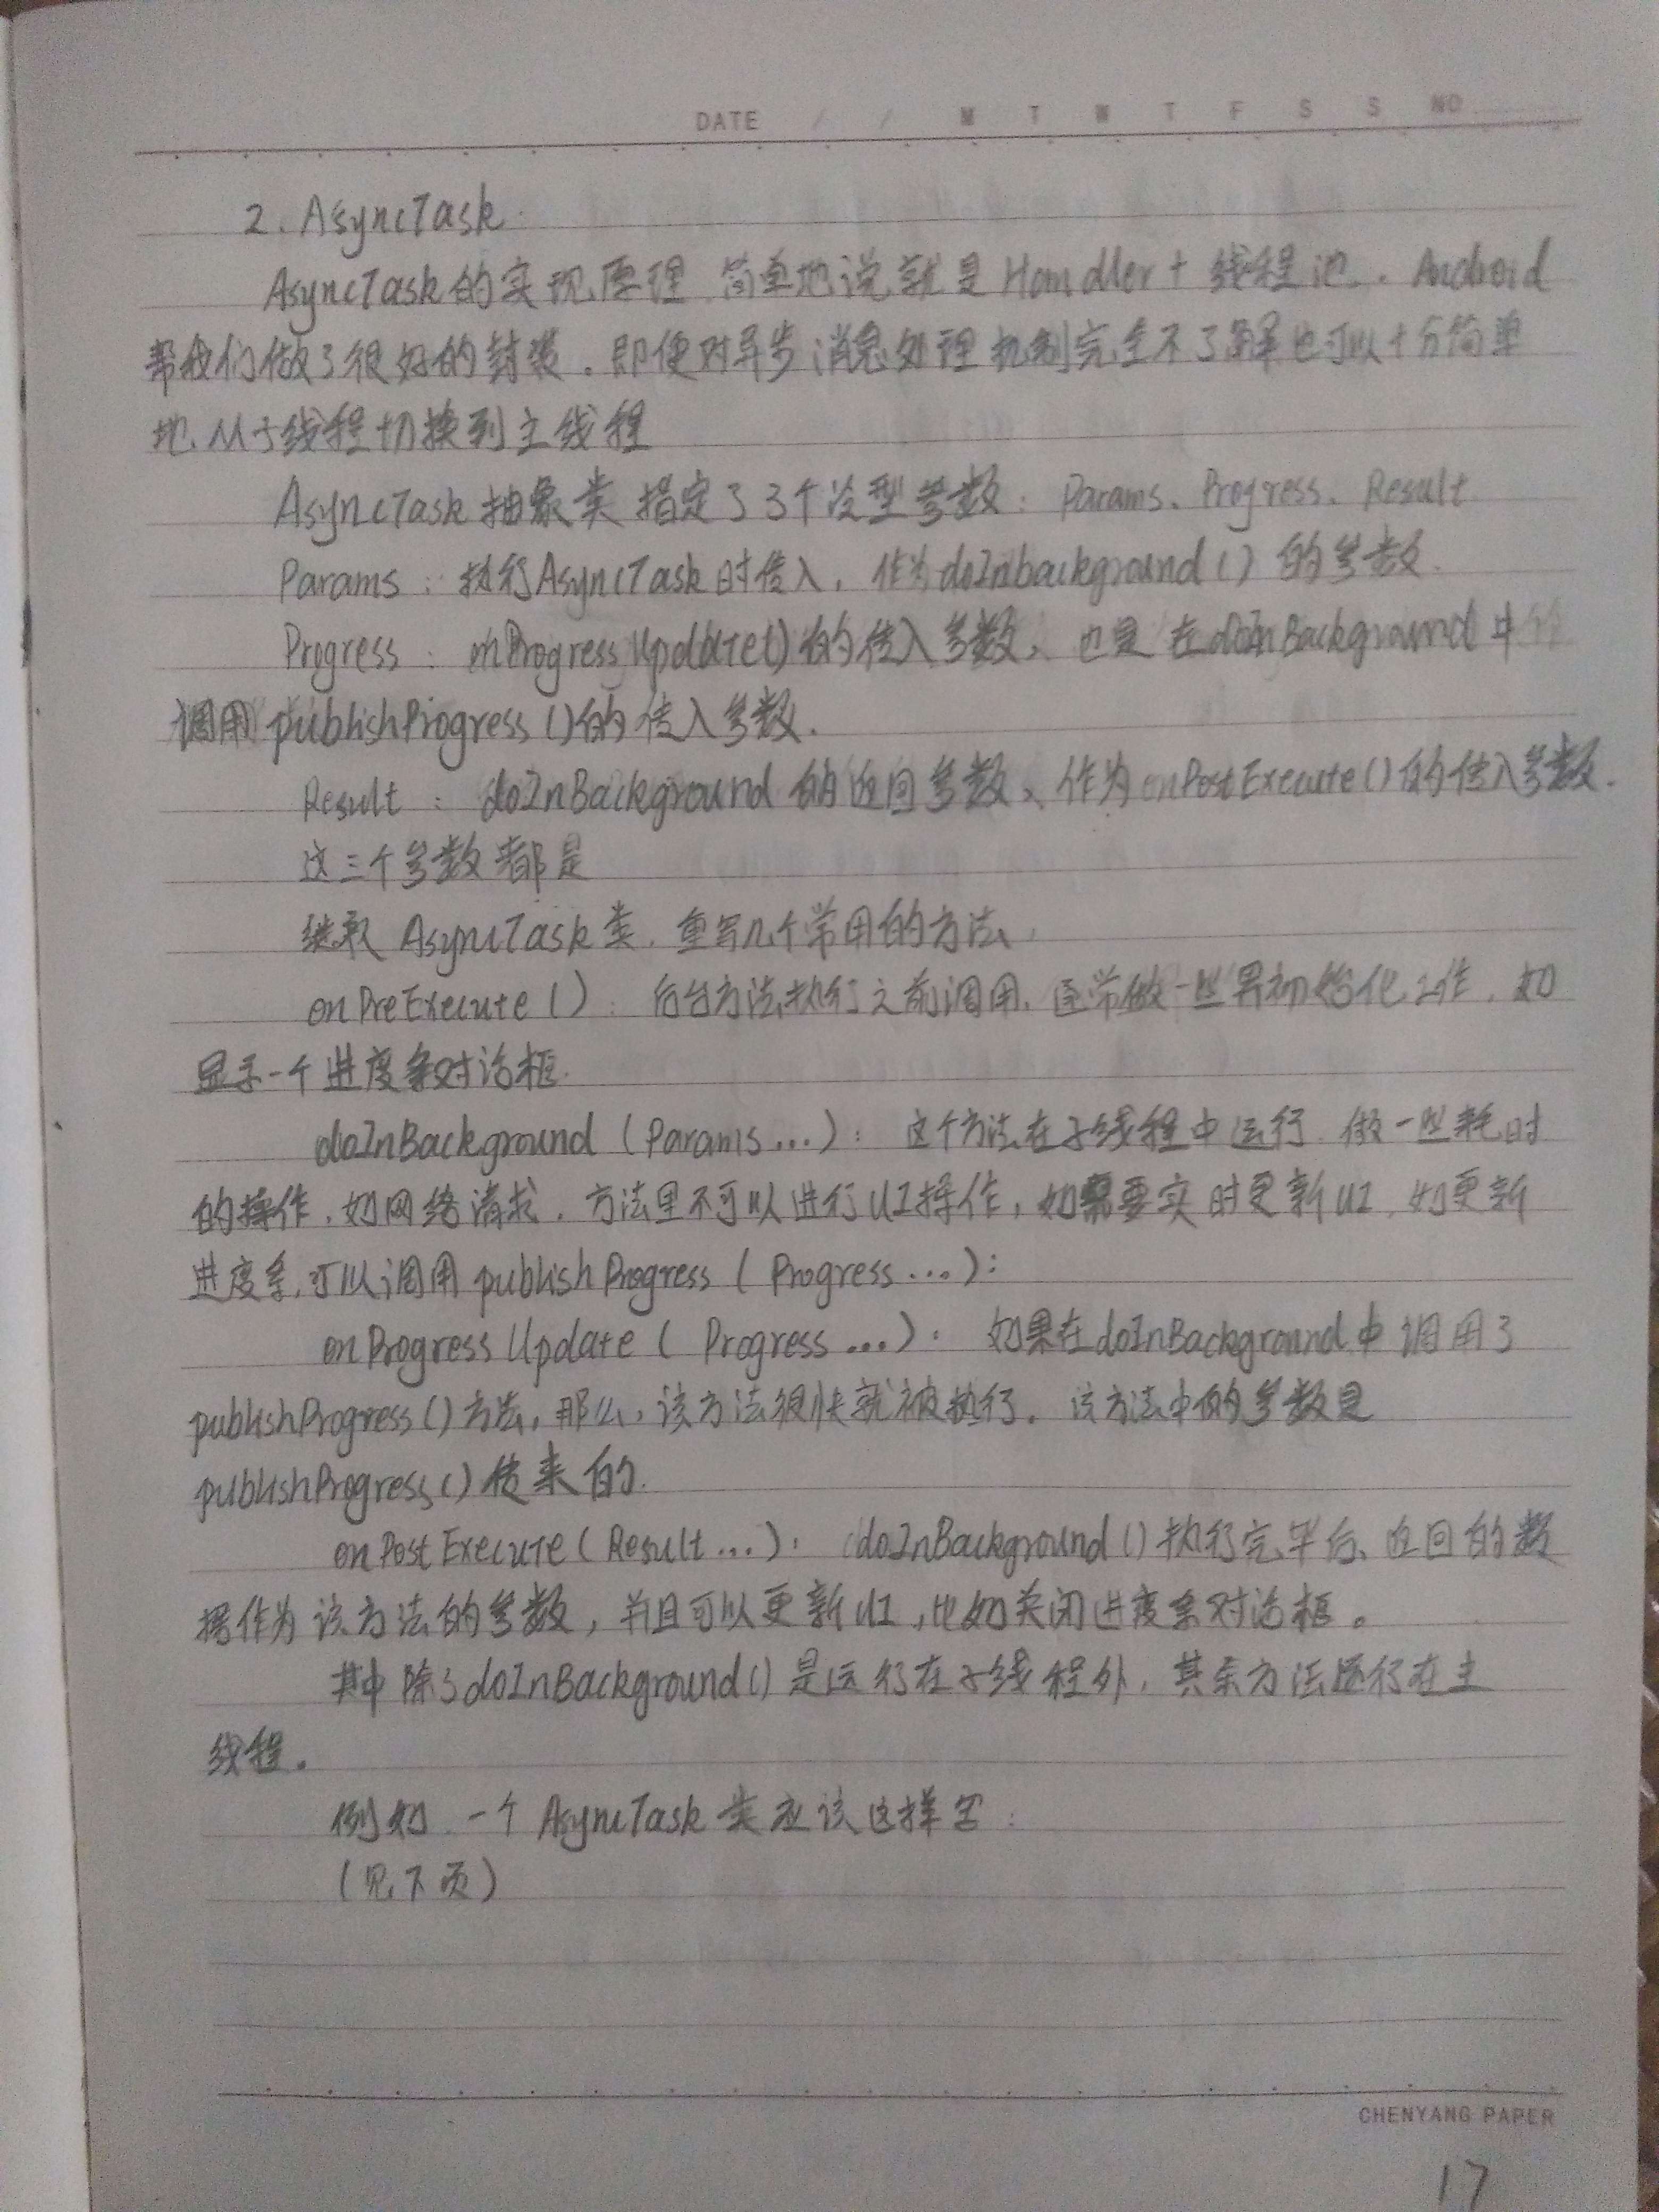 DATE / / M T W T F S S NO
2. AsyncTask.
AsyncTask的实现原理,简单地说就是Handler+线程池. Android
帮我们做了很好的封装.即便对异步消息处理机制完全不了解也可以十分简单
地从子线程切换到主线程
AsyncTask抽象类指定了3个泛型参数: Params、Progress、Result
Params: 执行AsyncTask时传入,作为doInbackground()的参数.
Progress: onProgressUpdate()的传入参数、也是在doInBackground中
调用publishProgress()的传入参数.
Result: doInBackground的返回参数、作为onPostExecute()的传入参数.
这三个参数都是
继承AsyncTask类,重写几个常用的方法.
onPreExecute(): 后台方法执行之前调用,通常做一些界初始化工作,如
显示一个进度条对话框.
doInBackground(Params...): 这个方法在子线程中运行,做一些耗时
的操作,如网络请求.方法里不可以进行UI操作,如需要实时更新UI,如更新
进度条,可以调用publishProgress(Progress...):
onProgressUpdate(Progress...): 如果在doInBackground中调用了
publishProgress()方法,那么,该方法很快就被执行.该方法中的参数是
publishProgress()传来的.
onPostExecute(Result...): doInBackground()执行完毕后、返回的数
据作为该方法的参数,并且可以更新UI,比如关闭进度条对话框。
其中除了doInBackground()是运行在子线程外,其余方法运行在主
线程。
例如,一个AsyncTask类应该这样写:
(见下页)
CHENYANG PAPER
17